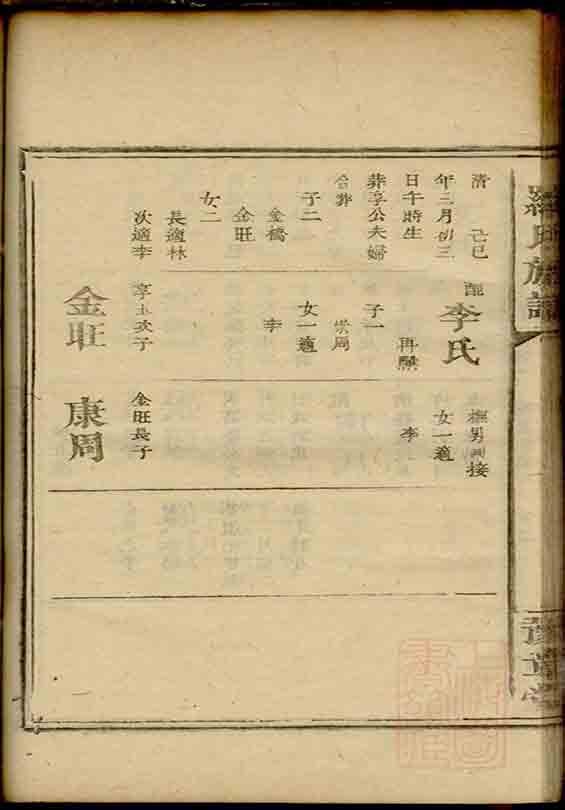 羅氏族譜
清己巳
年三月初三
日午時生
葬享公夫婦
合葬
子二
金橋
金旺
女二
長適林
次適李
配李氏
再醮
子一
崇周
女一適
李
享玉次子
金旺
女一適
李
金旺長子
康周